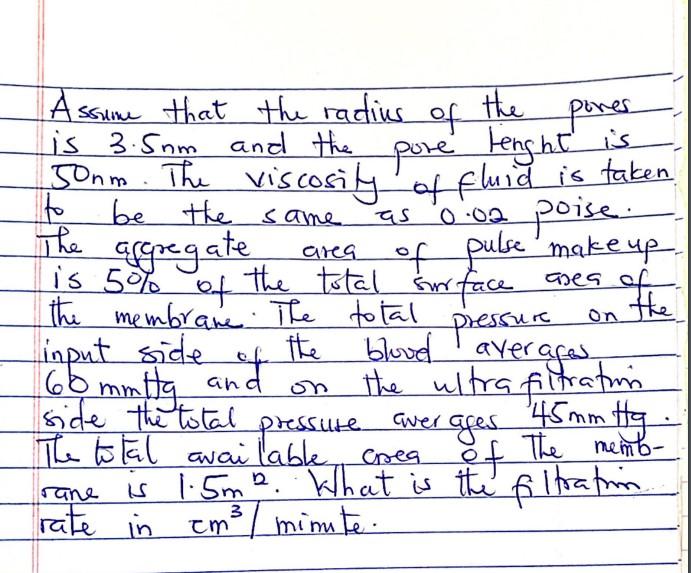 Assume that the radius of the pores
is 3.5nm and the pore lenght is
50nm. The viscosity of fluid is taken
to be the same as 0.02 poise.
The aggregate area of pulse makeup
is 5% of the total surface area of
the membrane. The total pressure on the
input side of the blood averages
60 mmHg and on the ultrafiltration
side the total pressure averages 45mmHg.
The total available area of The memb-
rane is 1.5m². What is the filtration
rate in cm³/minute.